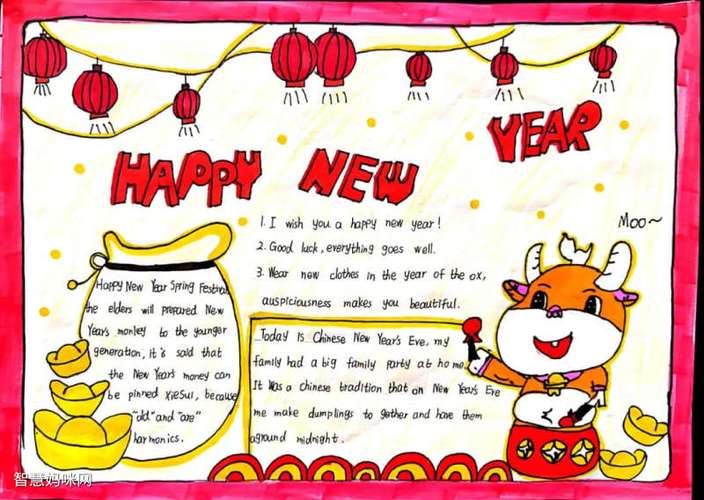 HAPPY NEW YEAR
Moo~
1. I wish you a happy new year!
2. Good luck, everything goes well.
3. Wear new clothes in the year of the ox,
auspiciousness makes you beautiful.
Happy New Year Spring Festival
the elders will prepared New
Year's monley to the younger
generation, it's said that
the New Year's money can
be pinned XieSui, because
"old" and "are"
harmonics.
Today is Chinese New Year's Eve, my
family had a big family party at home
It was a chinese tradition that on New Year's Eve
we make dumplings to gether and have them
aground midnight.
智慧妈咪网